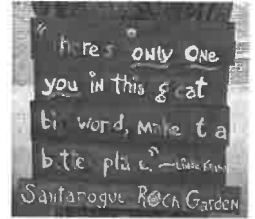 "here's only One
you in this great
big word, make t a
bette place."
Santarogue Rock Garden